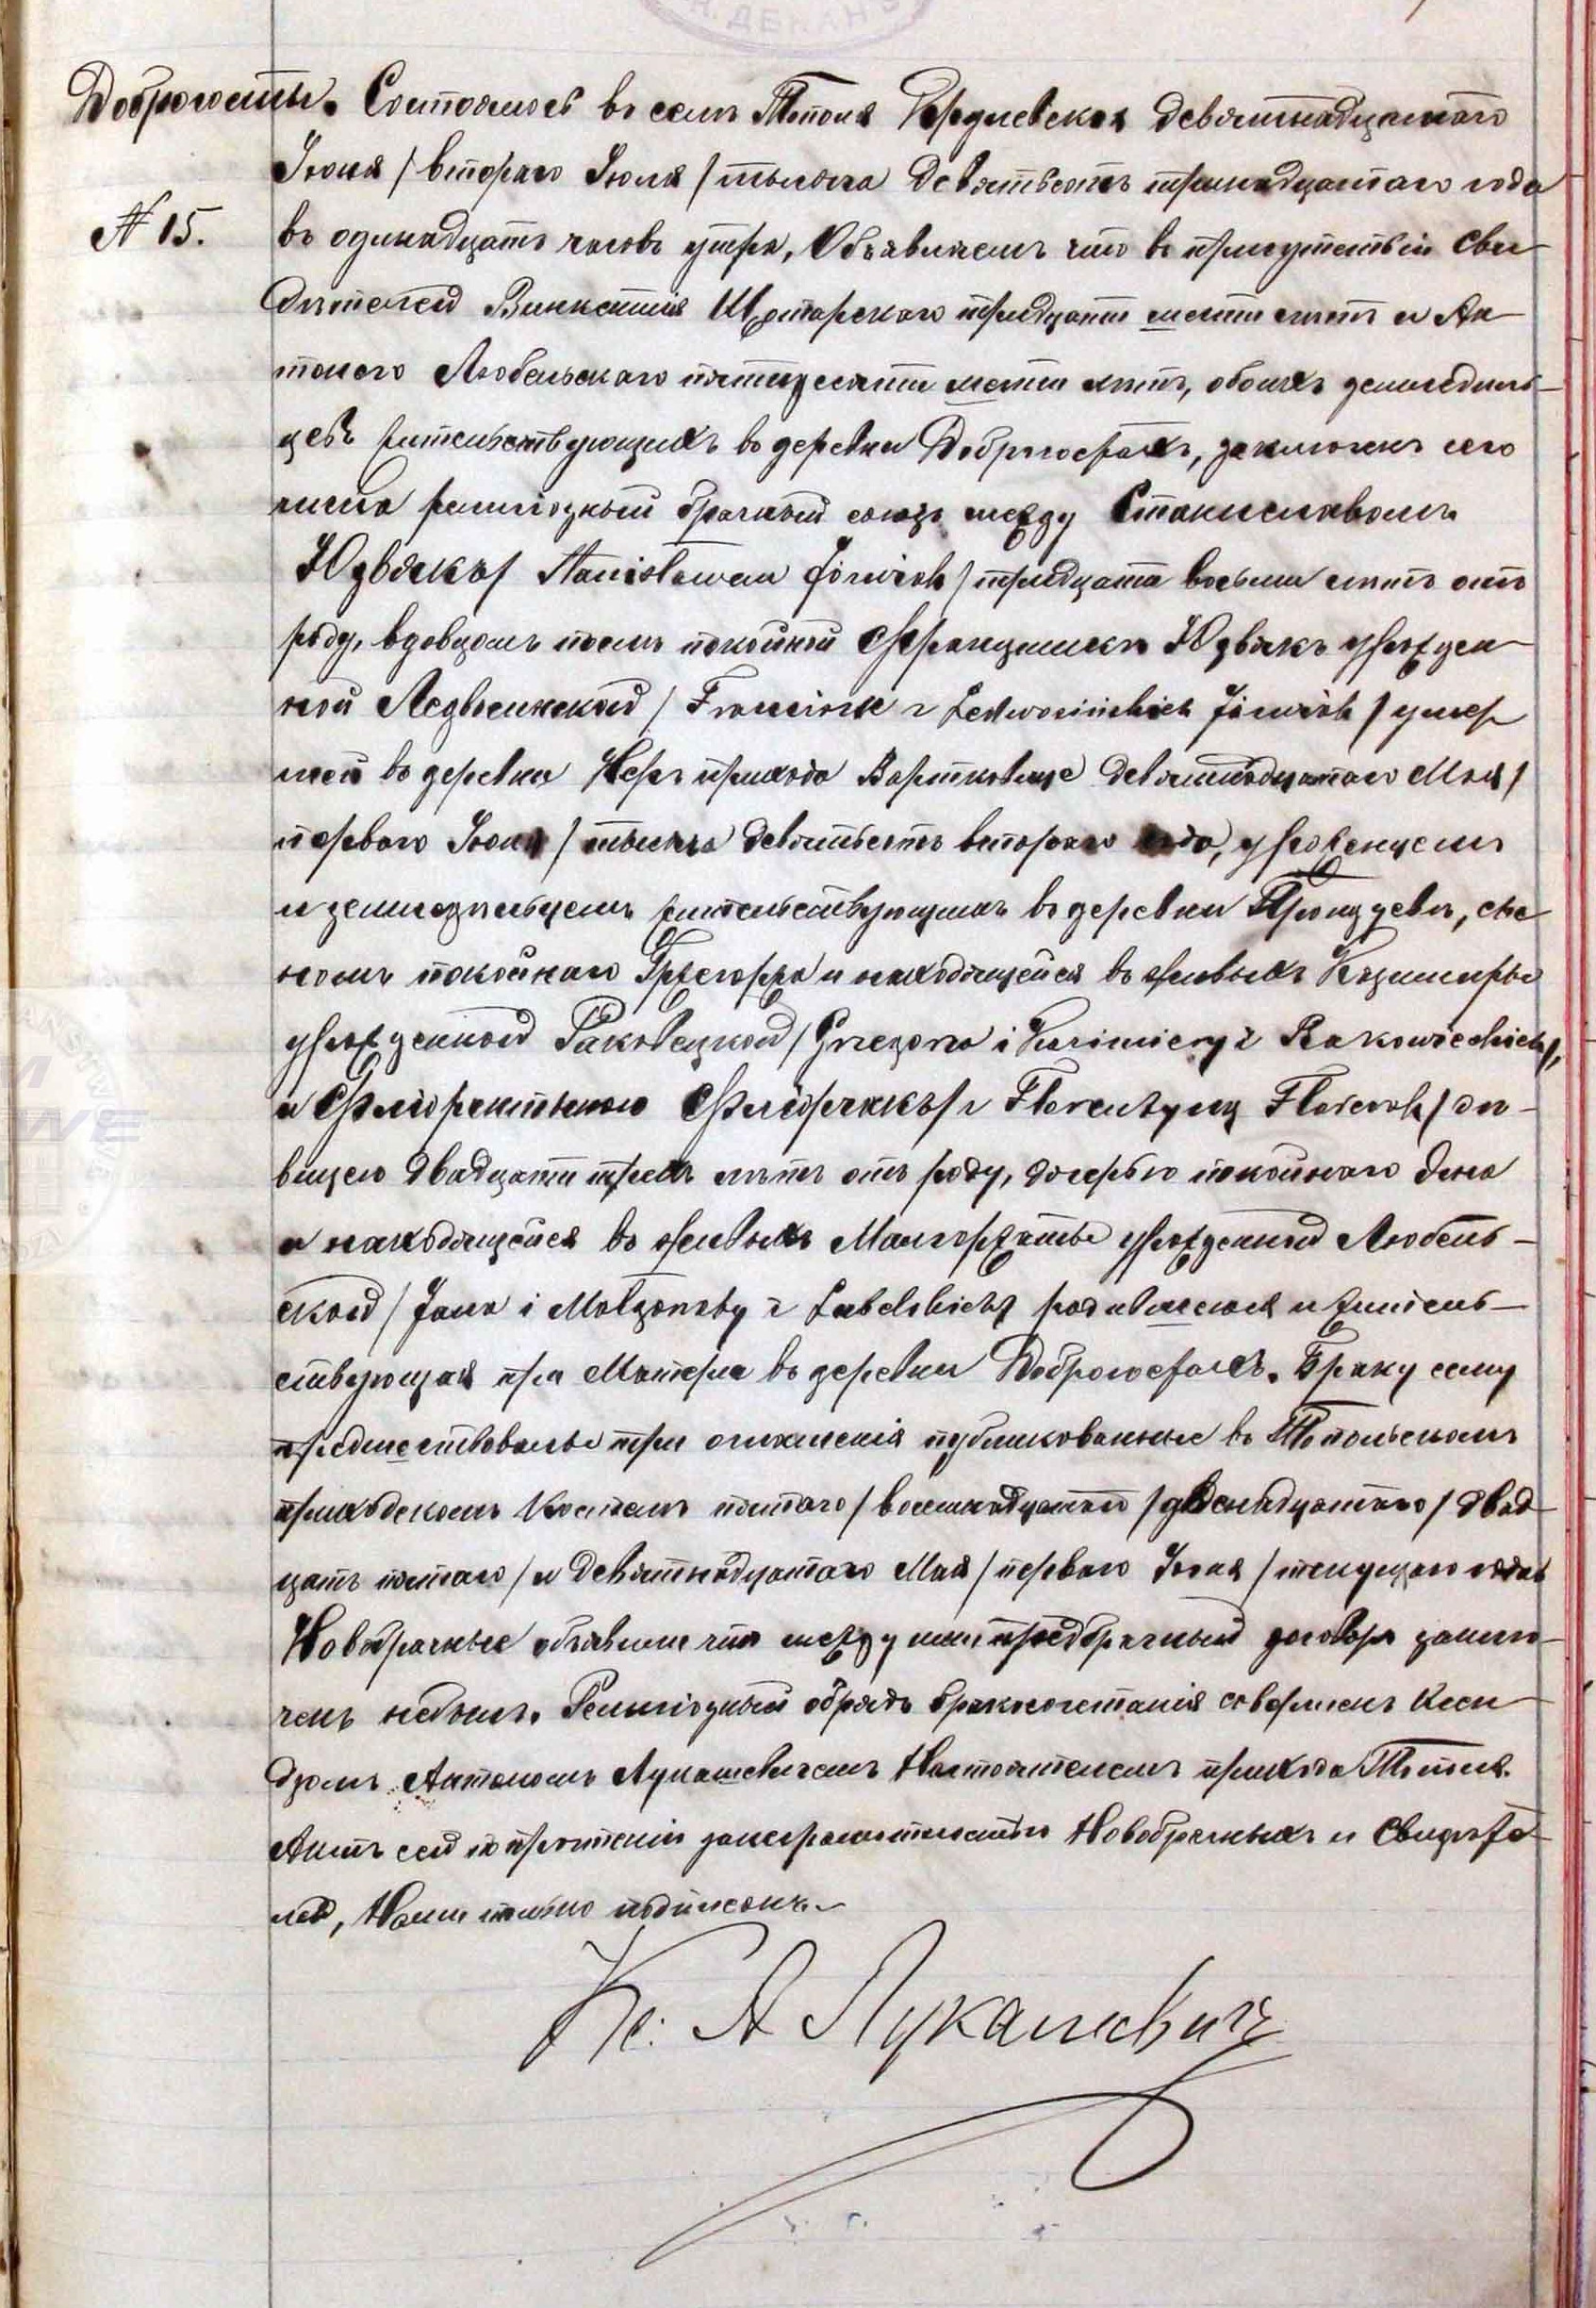 ДЕКАН
Доброгосты. Состоялось въ селѣ Тополя Королевская девятнадцатаго
Іюня / втораго Іюля / тысяча девятьсотъ тринадцатаго года
№ 15. въ одинадцать часовъ утра, Объявляемъ что въ присутствіи Сви-
дѣтелей Винкентія тридцати шести лѣтъ и Ан-
тонего Любельскаго пятидесяти шести лѣтъ, обоихъ земледѣль-
цевъ жительствующихъ въ деревни Доброгостахъ, заключенъ сего
числа религіозный брачный союзъ между Станиславомъ
Юзвякъ / Stanisławem Józwiak / тридцати восьми лѣтъ отъ
роду, вдовцомъ послѣ покойной Францишки Юзвякъ урожден-
ной Ледвосинской / Franciszk z Ledwosińskich Józwiak / умер
шей въ деревни Неръ прихода Вартковице девятнадцатаго Мая /
перваго Іюня / тысяча девятьсотъ втораго года, уроженцемъ
и земледѣльцемъ жительствующимъ въ деревни сы-
номъ покойнаго Гржегоржа и находящейся въ живыхъ Казимиры
урожденной Раковецкой / Grzegorza i Kazimiery z Rakowieckich /,
и Флёрентыною Флёрчакъ / z Florentyną Florczak / дѣ-
вицею двадцати трехъ лѣтъ отъ роду, дочерью покойнаго Яна
и находящейся въ живыхъ Малгоржаты урожденной Любель-
ской / Jana i Małgorzaty z Lubelskich / родившеюся и житель-
ствующая при Матери въ деревни Доброгостахъ. Браку сему
предшествовалы три оглашенія публикованные въ Топольскомъ
приходскомъ Костелѣ пятаго / восемнадцатаго / двенадцатаго / двад
цать пятаго / и девятнадцатаго Мая / перваго Іюня / текущаго года
Новобрачные объявили что между ими предбрачный договоръ заклю-
ченъ небылъ. Религіозный обрядъ бракосочетанія совершенъ Ксен-
дзомъ Антономъ Лукашевичемъ Настоятелемъ прихода Тополя.
Актъ сей по прочтеніи Новобрачныхъ и Свидѣте-
лей, Нами только подписанъ.
Кс: А Лукашевичъ